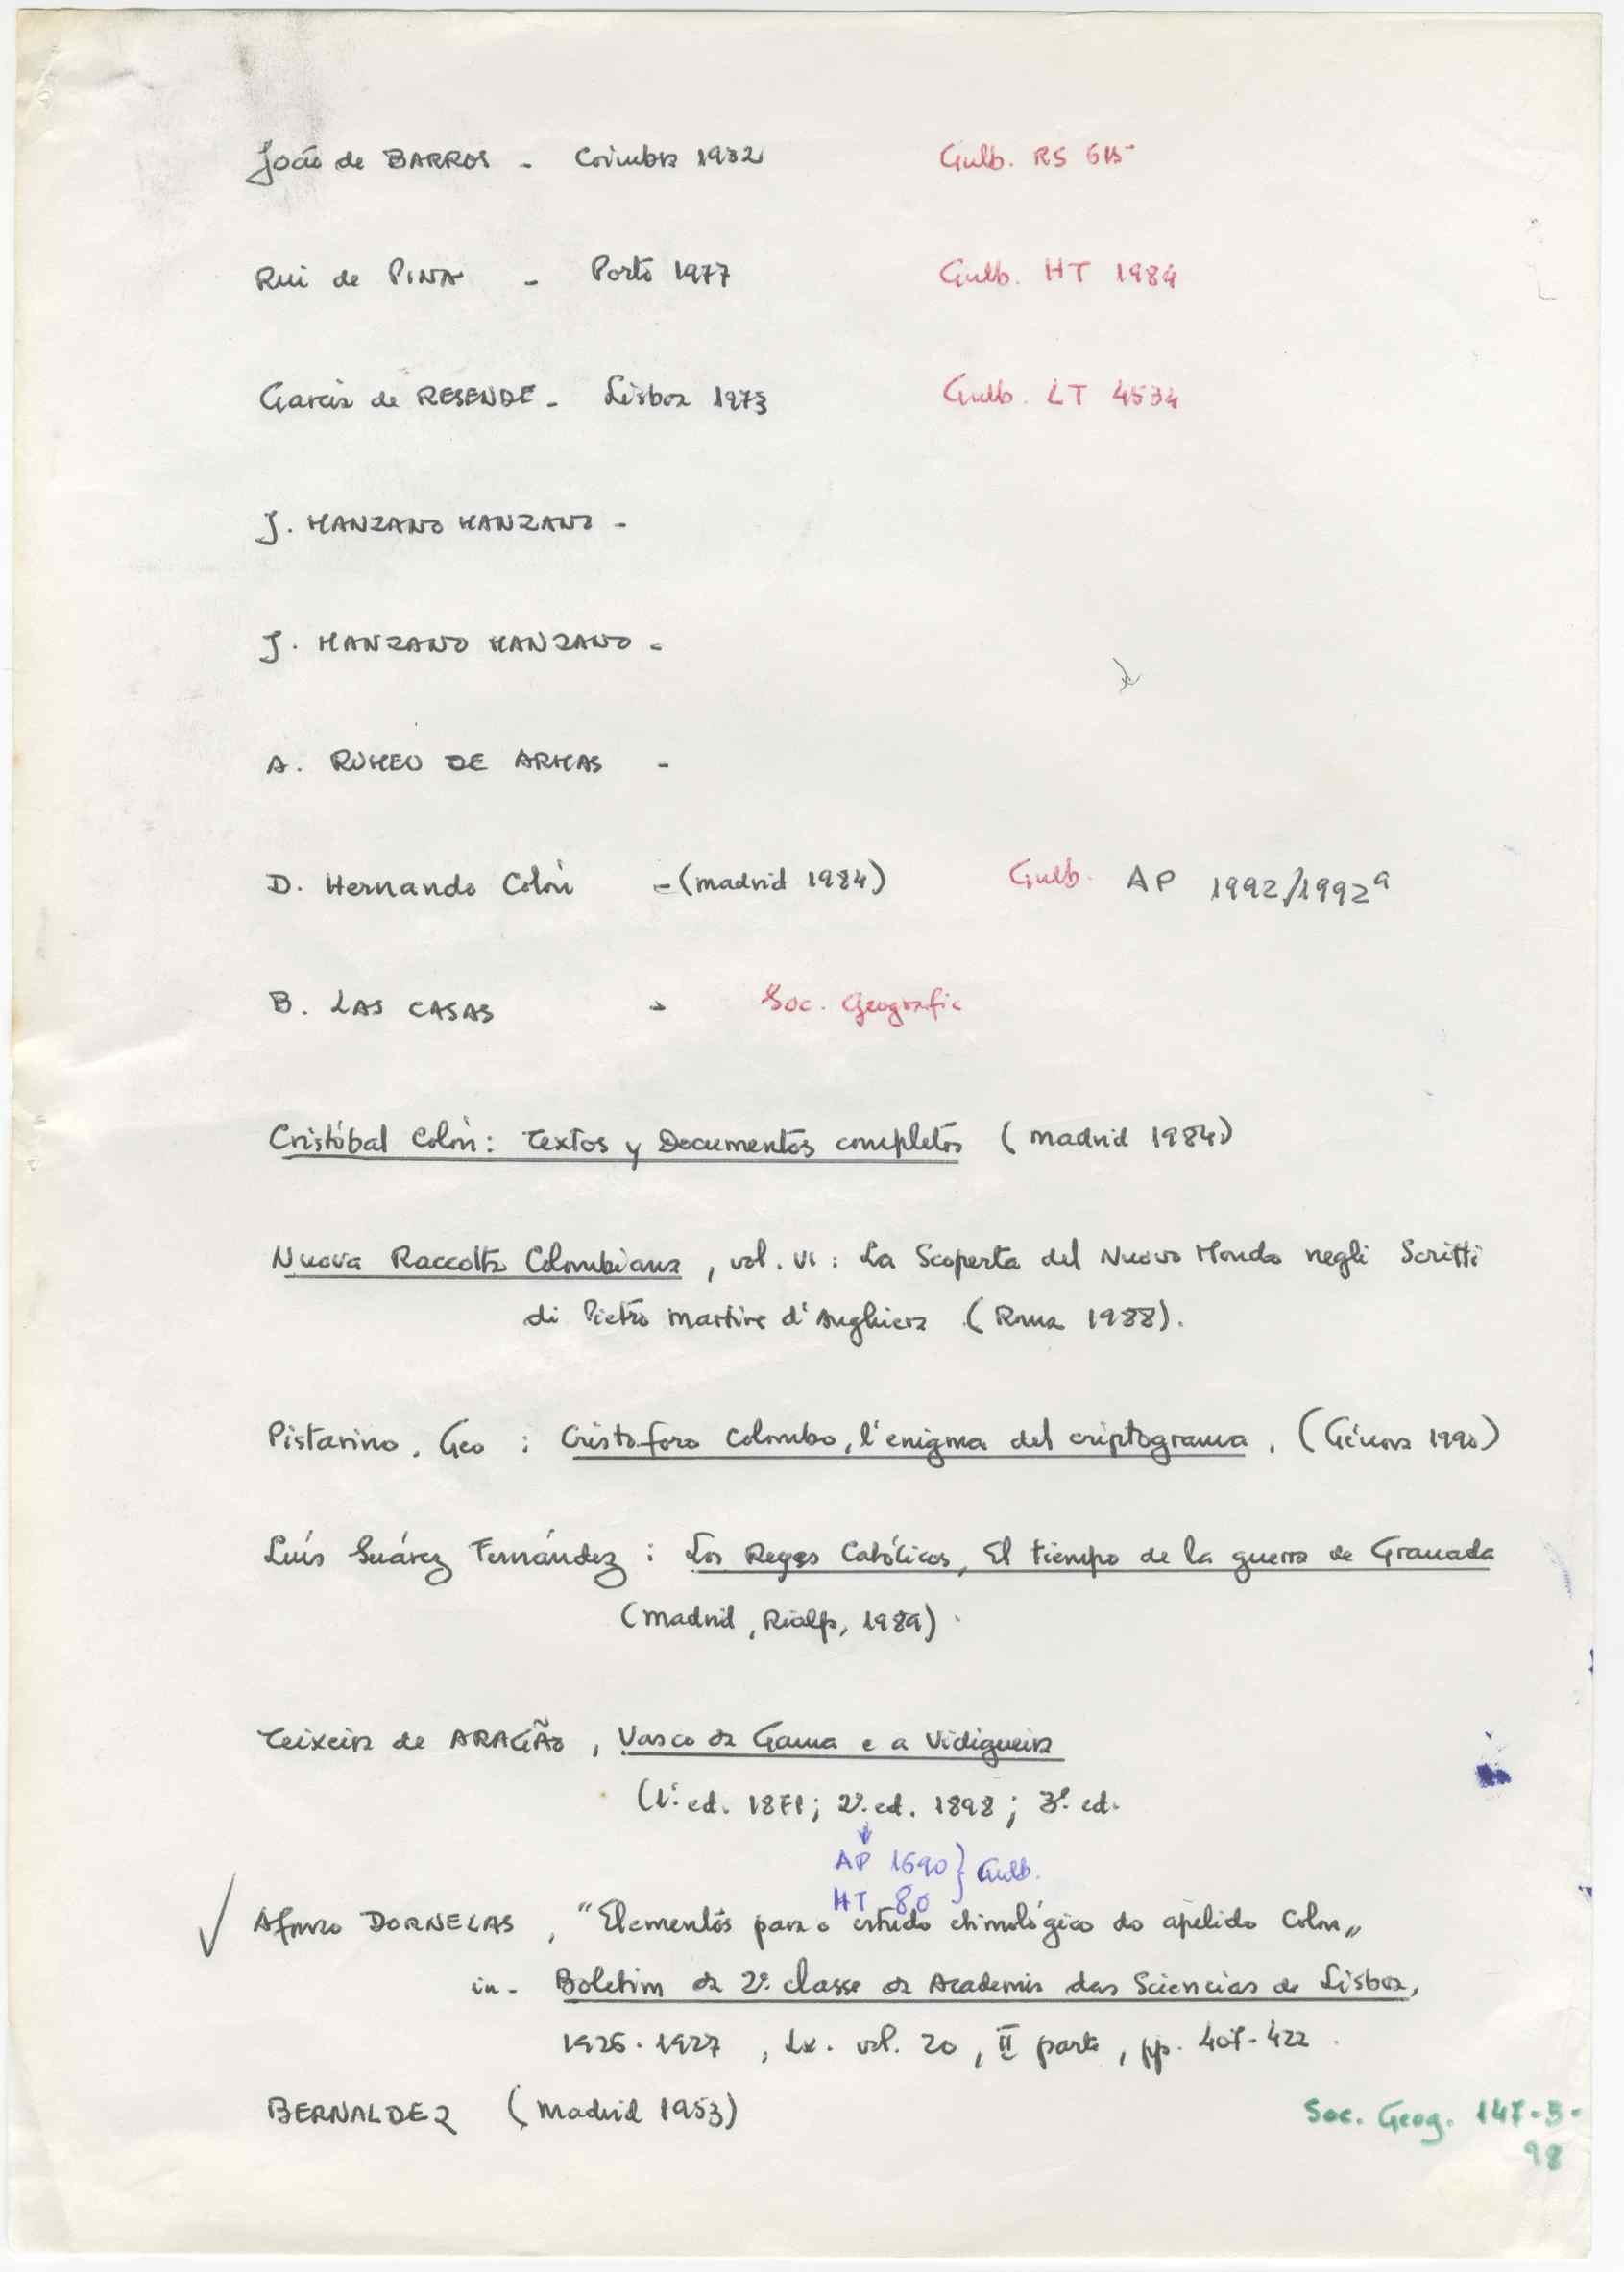 João de BARROS - Coimbra 1932 Gulb. RS 615
Rui de PINA - Porto 1977 Gulb. HT 1984
Garcia de RESENDE - Lisboa 1973 Gulb. LT 4534
J. MANZANO MANZANO -
J. MANZANO MANZANO -
A. RUMEO DE ARMAS -
D. Hernando Colón - (Madrid 1984) Gulb. AP 1992/1992a
B. LAS CASAS - Soc. Geografic
Cristóbal Colón: Textos y Documentos completos (Madrid 1984)
Nuova Raccolta Colombiana, vol. VI: La Scoperta del Nuovo Mondo negli Scritti
di Pietro Martire d'Anghiera (Roma 1988).
Pistarino, Geo: Cristoforo Colombo, l'enigma del criptograma, (Génova 1990)
Luís Suárez Fernández: Los Reyes Católicos, El tiempo de la guerra de Granada
(Madrid, Rialp, 1989).
Teixeira de ARAGÃO, Vasco da Gama e a Vidigueira
(1ª. ed. 1871; 2ª. ed. 1898; 3ª. ed.
AP 1690 } Gulb.
HT 80
Afonso DORNELAS, "Elementos para o estudo etimológico do apelido Colon"
in - Boletim da 2ª. classe da Academia das Sciencias de Lisboa,
1926-1927, Lx. vol. 20, II parte, pp. 407-422.
BERNALDEZ (Madrid 1953) Soc. Geog. 147-3-
98